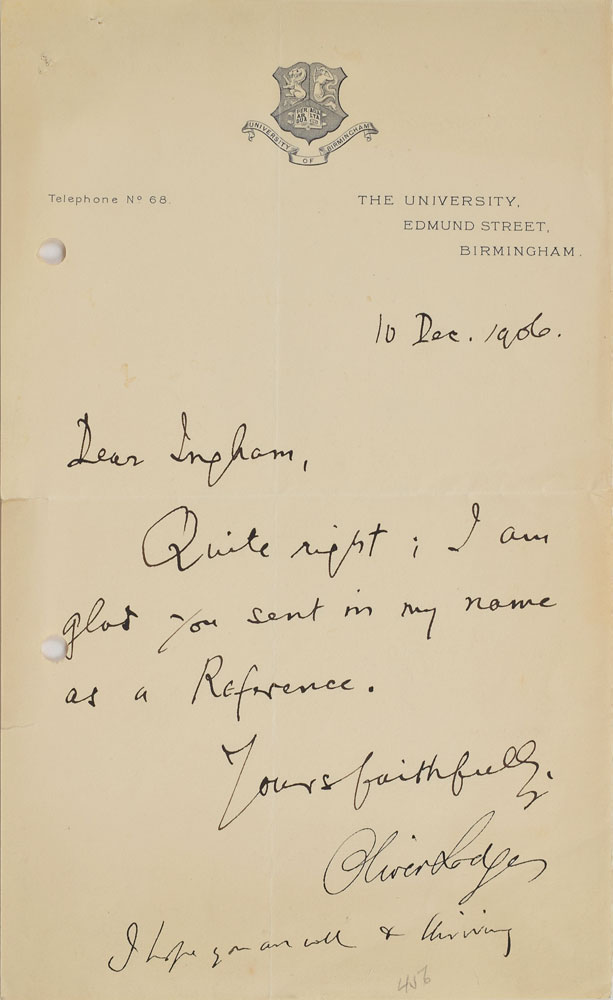 PER ARDUA
UNIVERSITY OF BIRMINGHAM
Telephone Nº 68.
THE UNIVERSITY,
EDMUND STREET,
BIRMINGHAM.
10 Dec. 1906.
Dear Ingham,
Quite right; I am
glad you sent in my name
as a Reference.
Yours faithfully,
Oliver Lodge
I hope you are well & thriving
456